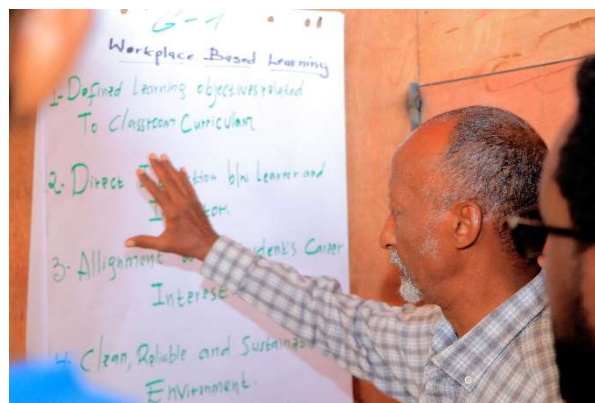 G-1
Workplace Based Learning
1-Defined Learning objectives related
To Classroom Curriculam
2. Direct b/w Learner and
3- Allignment Career
Interest
4. Clean, Reliable and
Environment.